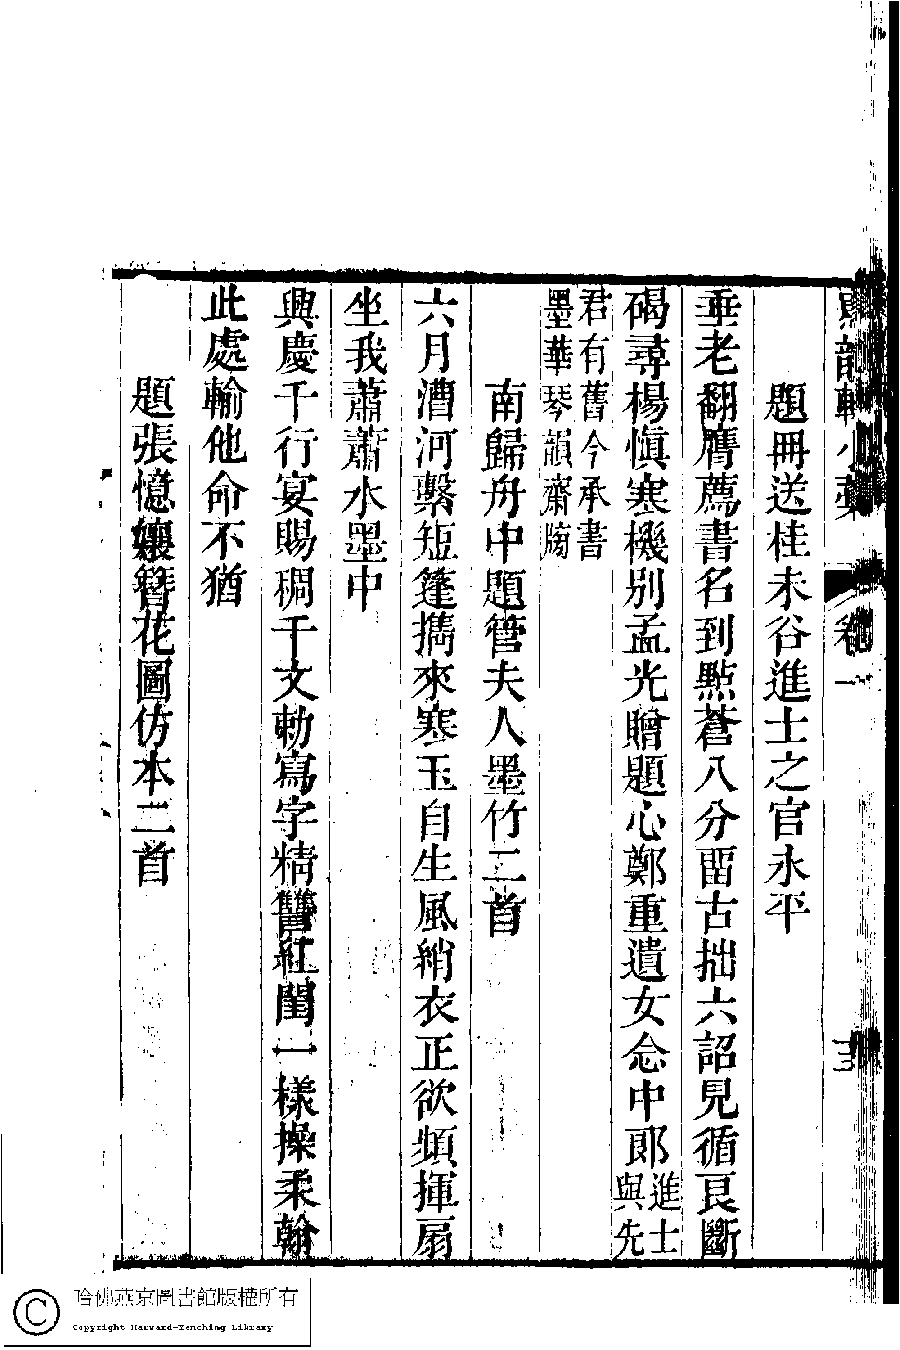 韻軒小藁
卷一
十三
題冊送桂未谷進士之官永平
垂老翻膺薦書名到點蒼八分留古拙六詔見循良斷
碣尋楊愼寒機別孟光贈題心鄭重遺女念中郞進士與先
君有舊今承書墨華琴韻齋牓
南歸舟中題管夫人墨竹二首
六月漕河繫短篷攜來寒玉自生風綃衣正欲頻揮扇
坐我蕭蕭水墨中
興慶千行宴賜稠千文勅寫字精讐紅閨一樣操柔翰
此處輸他命不猶
題張憶孃簪花圖仿本二首
哈佛燕京圖書館版權所有
Copyright Harvard-Yenching Library